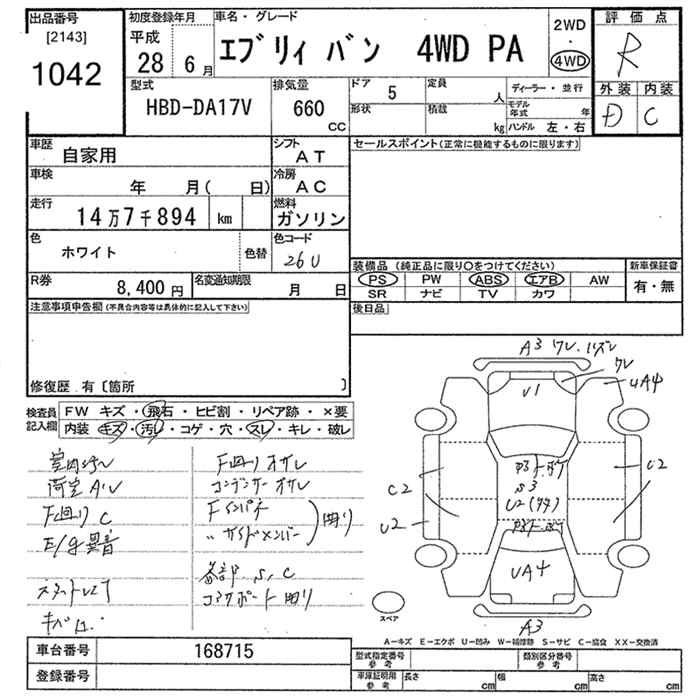 出品番号
[2143]
1042
初度登録年月
平成
28 6月
車名・グレード
エブリィ バン 4WD PA
2WD
・
4WD
評価点
R
外装 内装
D C
型式
HBD-DA17V
排気量
660
CC
ドア 5
形状
定員 人
積載 kg
ディーラー・並行
モデル年式 年
ハンドル 左・右
車歴 自家用
シフト AT
セールスポイント(正常に機能するものに限ります)
車検 年 月( 日)
冷房 AC
走行 14万7千894 km
燃料 ガソリン
色 ホワイト 色替
色コード 26U
装備品 (純正品に限り○をつけてください)
PS PW ABS エアB AW
SR ナビ TV カワ
新車保証書
有・無
R券 8,400円
名変通知期限 月 日
後日品
注意事項申告欄(不具合内容等は具体的に記入して下さい)
修復歴 有〔箇所 〕
検査員記入欄
FW キズ・飛石・ヒビ割・リペア跡・×要
内装 キズ・汚レ・コゲ・穴・スレ・キレ・破レ
荷室 A.U
F廻り C
E/g異音
F廻り オサレ
コンデンサー オサレ
Fインパネ
〃 サイドメンバー
曲り
各部 S, C
コアサポート 曲り
A3 ワレ.
ワレ
UA4
U1
S3
C2
U2
U2
UA4
A3
スペア
A-キズ E-エクボ U-凹み W-補修跡 S-サビ C-腐食 XX-交換済
車台番号 168715
登録番号
型式指定番号 参考
類別区分番号 参考
車庫証明用 参考
長さ cm
幅 cm
高さ cm